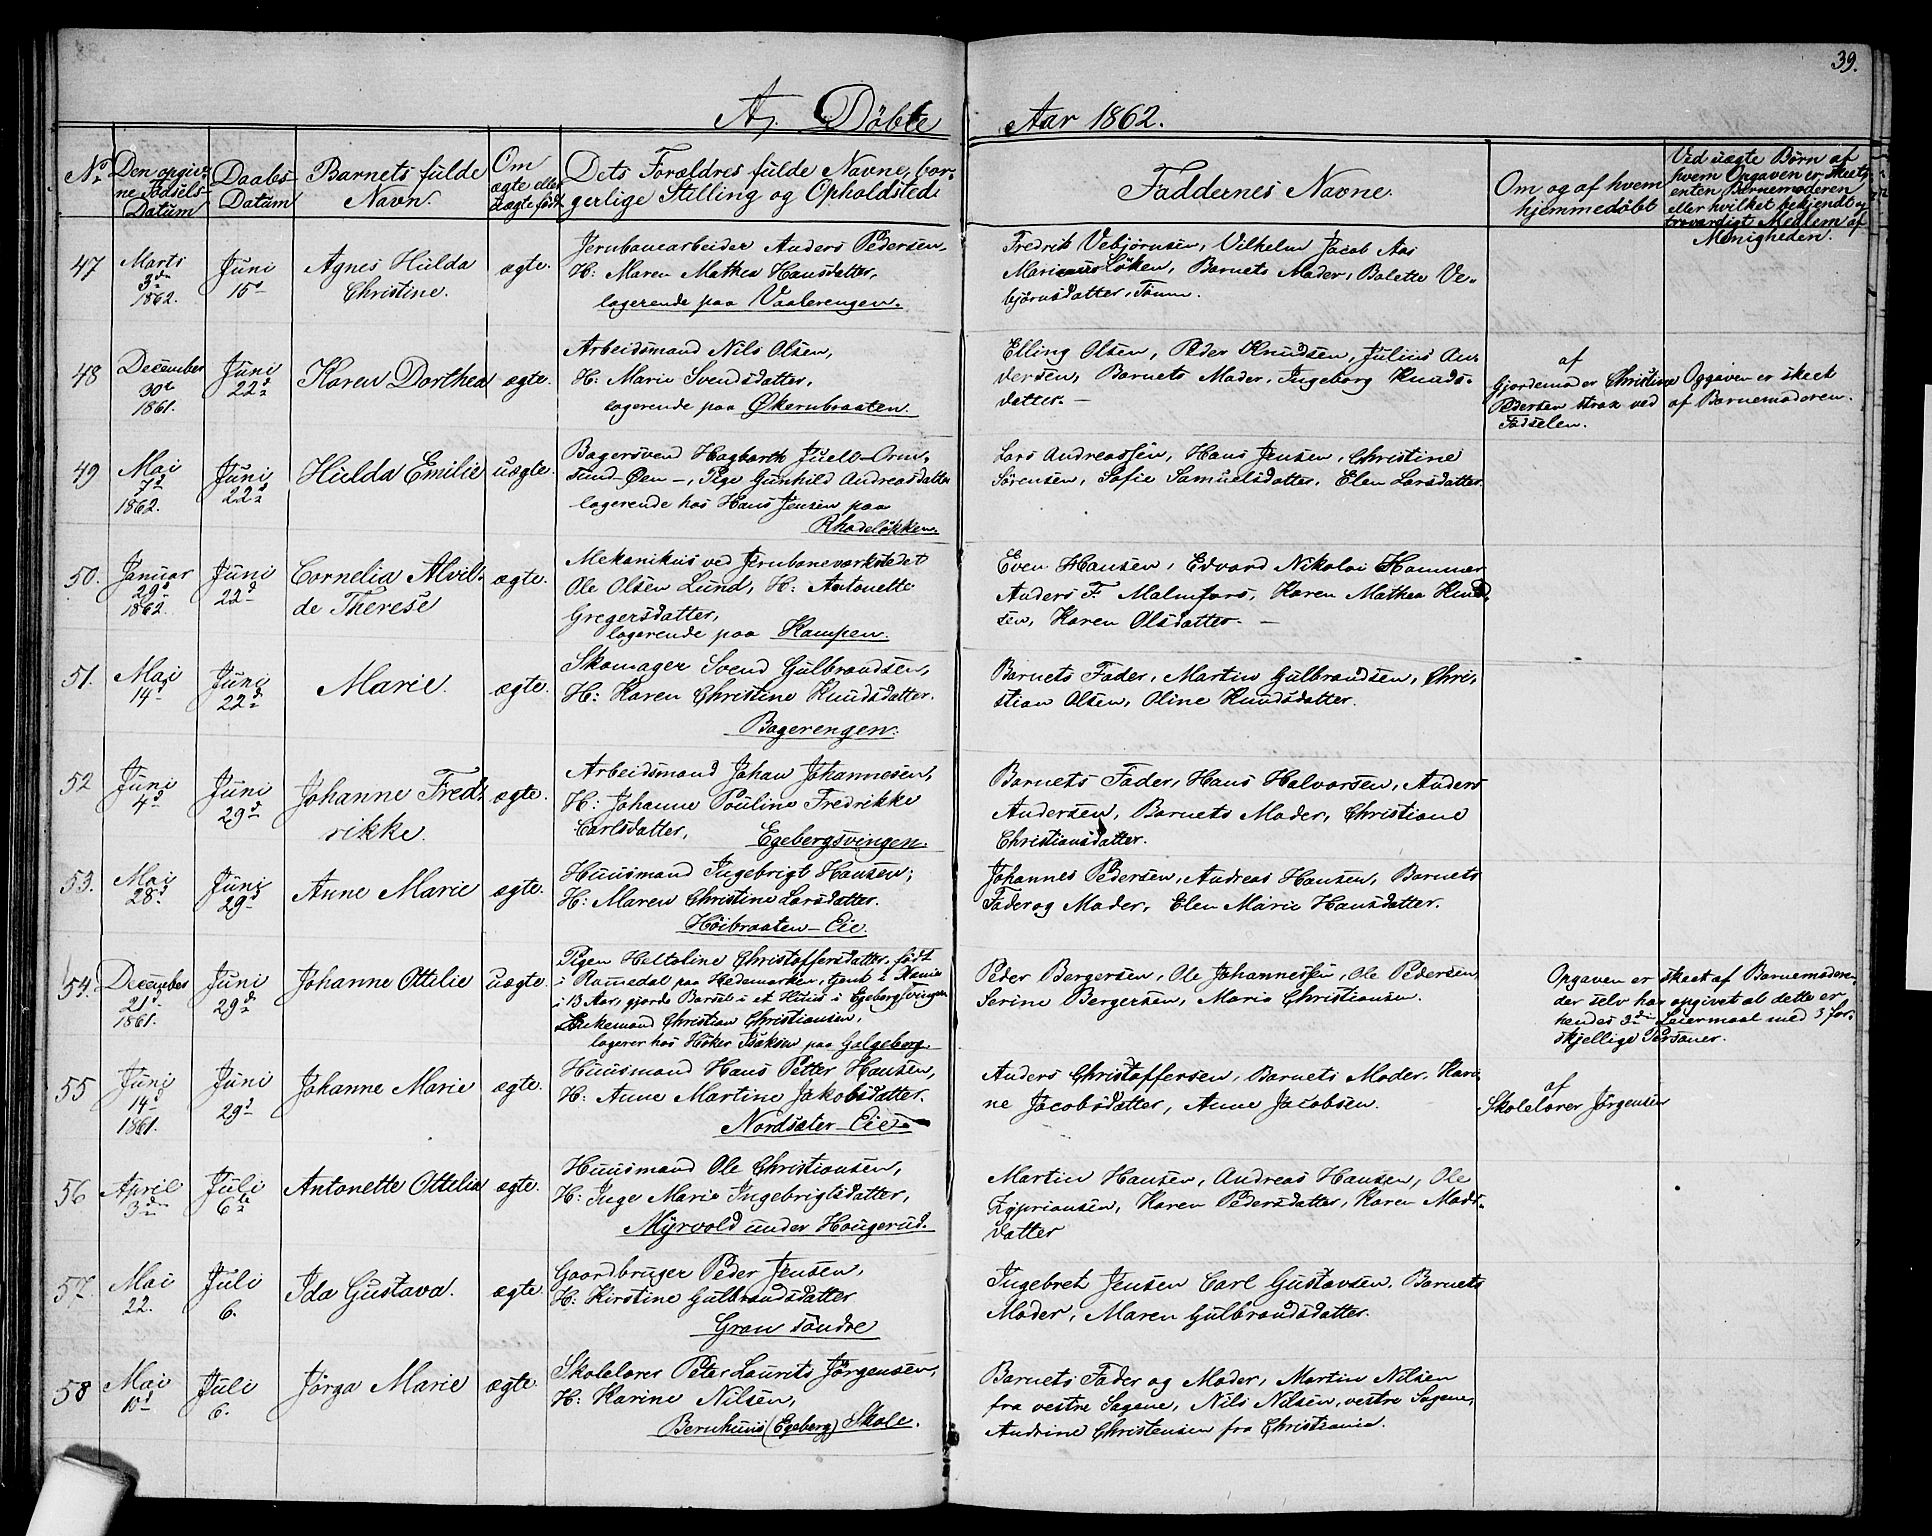 39.
A, Döbte Aar 1862.
No. Den opgiv-
ne Fødsels-
Datum
Daabs-
Datum
Barnets fulde
Navn.
Om
ægte eller
uægte født
Dets Forældres fulde Navne, bor-
gerlige Stilling og Opholdsted.
Faddernes Navne.
Om og af hvem
hjemmedøbt
Ved uægte Børn af
hvem Opgaven er skeet,
enten Barnemoderen
eller hvilket bekjendt og
troværdigt Medlem af
Menigheden.
47 Marts
3die
1862.
Juni
15de
Agnes Hulda
Christine.
ægte.
Jernbanearbeider Anders Pedersen.
H: Maren Mathea Hansdatter,
logerende paa Vaalerengen.
Fredrik Vebjörnsen, Vilhelm Jacob Aas
Löken, Barnets Moder, Balette Ve-
björnsdatter,
48 December
30te
1861.
Juni
22de
Karen Dorthea
ægte.
Arbeidsmand Nils Olsen,
H: Marie Svendsdatter,
logerende paa Økernbraaten.
Elling Olsen, Peder Knudsen, Julius An-
dersen, Barnets Moder, Ingeborg Knuds-
datter. –
af
Gjordemoder Christine
Pedersen strax ved
Fødselen.
Opgaven er skeet
af Barnemoderen.
49 Mai
7de
1862.
Juni
22de
Hulda Emilie
uægte.
Bagersvend Hagbarth Juell-Orm-
sund-Øen –, Pige Gunhild Andreasdatter
logerende hos Hans Jensen paa
Rhodeløkken.
Lars Andreassen, Hans Jensen, Christine
Sörensen, Sofie Samuelsdatter, Elen Larsdatter.
50. Januar
29de
1862.
Juni
22de
Cornelia Alvil-
de Therese
ægte.
Mekanikus ved Jernbaneværkstedet
Ole Olsen Lund, H: Antonette
Gregersdatter,
logerende paa Kampen.
Even Hansen, Edvard Nikolai Hammer
Anders F. Malmfors, Karen Mathea Knud-
sen, Karen Olsdatter. –
51. Mai
14de
Juni
22de
Marie.
ægte.
Skomager Svend Gulbrandsen,
H: Karen Christine Knudsdatter.
Bagerengen.
Barnets Fader, Martin Gulbrandsen, Chri-
stian Olsen, Oline Knudsdatter.
52 Juni
4de
Juni
29de
Johanne Fred-
rikke.
ægte.
Arbeidsmand Johan Johannesen,
H: Johanne Pouline Fredrikke
Carlsdatter,
Egebergsvingen.
Barnets Fader, Hans Halvorsen, Anders
Andersen, Barnets Moder, Christiane
Christiansdatter.
53. Mai
28de
Juni
29de
Anne Marie
ægte.
Huusmand Ingebrigt Hansen,
H: Maren Christine Larsdatter.
Høibraaten-Eie.
Johannes Pedersen, Andreas Hansen, Barnets
Fader og Moder, Elen Marie Hansdatter.
54. December
21de
1861.
Juni
29de
Johanne Ottilie
uægte.
Pigen Heltoline Christoffersdatter, født
i Romedal paa Hedemarken, tjent i
i 13 Aar, gjorde Barsel i et Huus i Egebergsvingen
Enkemand Christian Christiansen,
logerer hos Høker Isaksen paa Galgeberg.
Peder Bergersen, Ole Johannessen, Ole Pedersen
Serine Bergersen, Marie Christiansen.
Opgaven er skeet af Barnemoderen
der selv har opgivet at dette er
hendes 3die Leiermaal med 3 for-
skjellige Personer.
55 Juni
14de
1861.
Juni
29de
Johanne Marie
ægte.
Huusmand Hans Petter Hansen,
H: Anne Martine Jakobsdatter.
Nordsæter-Eie
Anders Christoffersen, Barnets Moder, Kari-
ne Jacobsdatter, Anne Jacobsen.
af
Skolelærer Jörgensen
56 April
3die
Juli
6te
Antonette Ottilia
ægte.
Huusmand Ole Christiansen,
H: Inge Marie Ingebrigtsdatter,
Myrvold under Hougerud.
Martin Hansen, Andreas Hansen, Ole
Zypriansen, Karen Pedersdatter, Karen Mads-
datter
57. Mai
22.
Juli
6.
Ida Gustava.
ægte.
Gaardbruger Peder Jensen,
H: Kirstine Gulbrandsdatter
Gran söndre
Ingebret Jensen Carl Gustavsen, Barnets
Moder, Maren Gulbrandsdatter.
58 Mai
10de
Juli
6.
Jörga Marie
ægte.
Skolelærer Peter Laurits Jörgensen,
H: Karine Nilsen,
Bernhuus (Egeberg) Skole.
Barnets Fader og Moder, Martin Nilsen
fra vestre Sagene, Nils Nilsen, vestre Sagene,
Andrine Christensen fra Christiania.